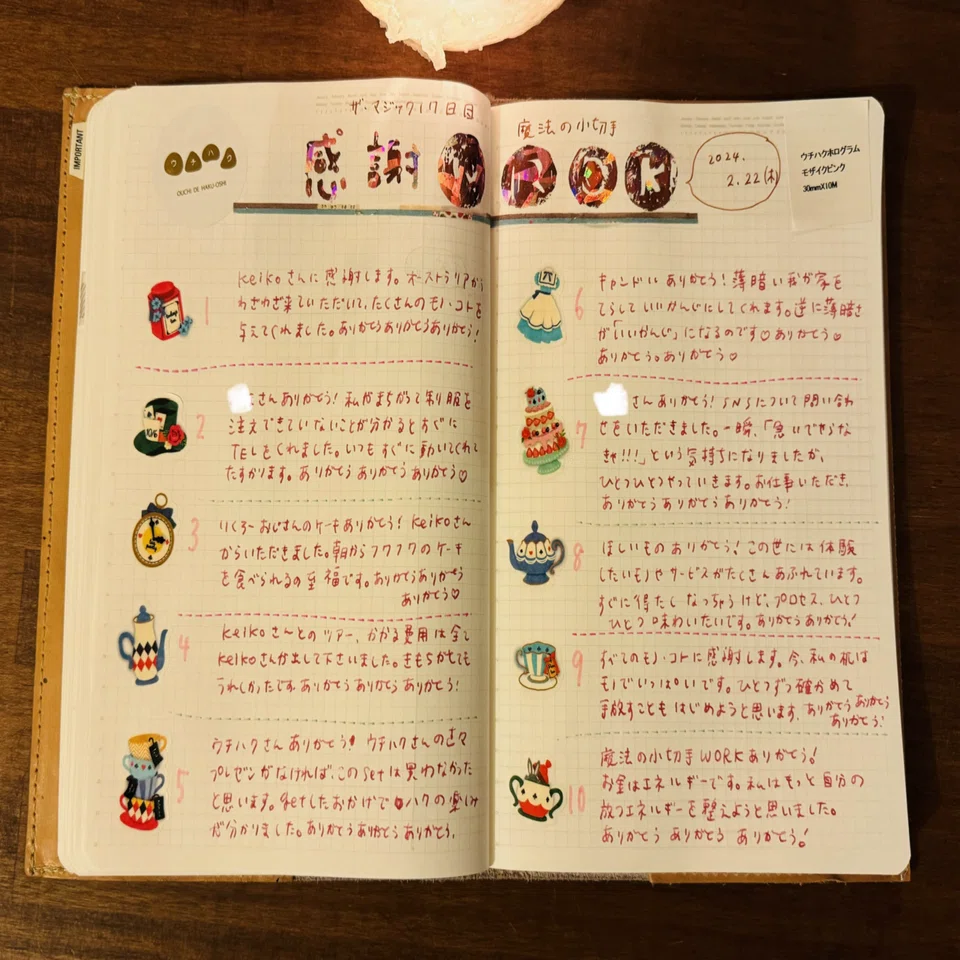 ザ・マジック17日目
魔法の小切手
感謝WORK
2024.
2.22(木)
ウチハク
OUCHI DE HAKU-OSHI
IMPORTANT
ウチハクホログラム
モザイクピンク
30mmX10M
1
Keikoさんに感謝します。オーストラリアから
わざわざ来ていただいて、たくさんのモノ・コトを
与えてくれました。ありがとうありがとうありがとう!
2
さんありがとう! 私がまちがって制服を
注文できていないことが分かるとすぐに
TELをくれました。いつもすぐに動いてくれて
たすかります。ありがとうありがとうありがとう♡
3
りくろーおじさんのケーキありがとう! Keikoさん
からいただきました。朝からフワフワのケーキ
を食べられるの至福です。ありがとうありがとう
ありがとう♡
4
Keikoさんとのツアー、かかる費用は全て
Keikoさんが出して下さいました。きもちがとても
うれしかったです ありがとうありがとう ありがとう!
5
ウチハクさんありがとう! ウチハクさんの
プレゼンがなければ、このsetは買わなかった
と思います。getしたおかげでハクの楽しみ
が分かりました。ありがとうありがとうありがとう。
6
キャンドル ありがとう! 薄暗い我が家を
てらしていいかんじにしてくれます。逆に薄暗さ
が「いいかんじ」になるのです♡ありがとう♡
ありがとう。ありがとう♡
7
さんありがとう! SNSについて問い合わ
せをいただきました。一瞬、「急いでやらな
きゃ!!!」という気持ちになりましたが、
ひとつひとつやっていきます。お仕事いただき、
ありがとうありがとうありがとう!
8
ほしいもの ありがとう! この世には体験
したいモノやサービスがたくさんあふれています。
すぐに得たくなっちゃうけど、プロセス、ひとつ
ひとつ味わいたいです。ありがとうありがとう!
9
すべてのモノ・コトに感謝します。今、私の机は
モノでいっぱいです。ひとつずつ確かめて
手放すこともはじめようと思います。ありがとうありがとう
ありがとう!
10
魔法の小切手WORKありがとう!
お金はエネルギーです。私はもっと自分の
放つエネルギーを整えようと思いました。
ありがとう ありがとう ありがとう!